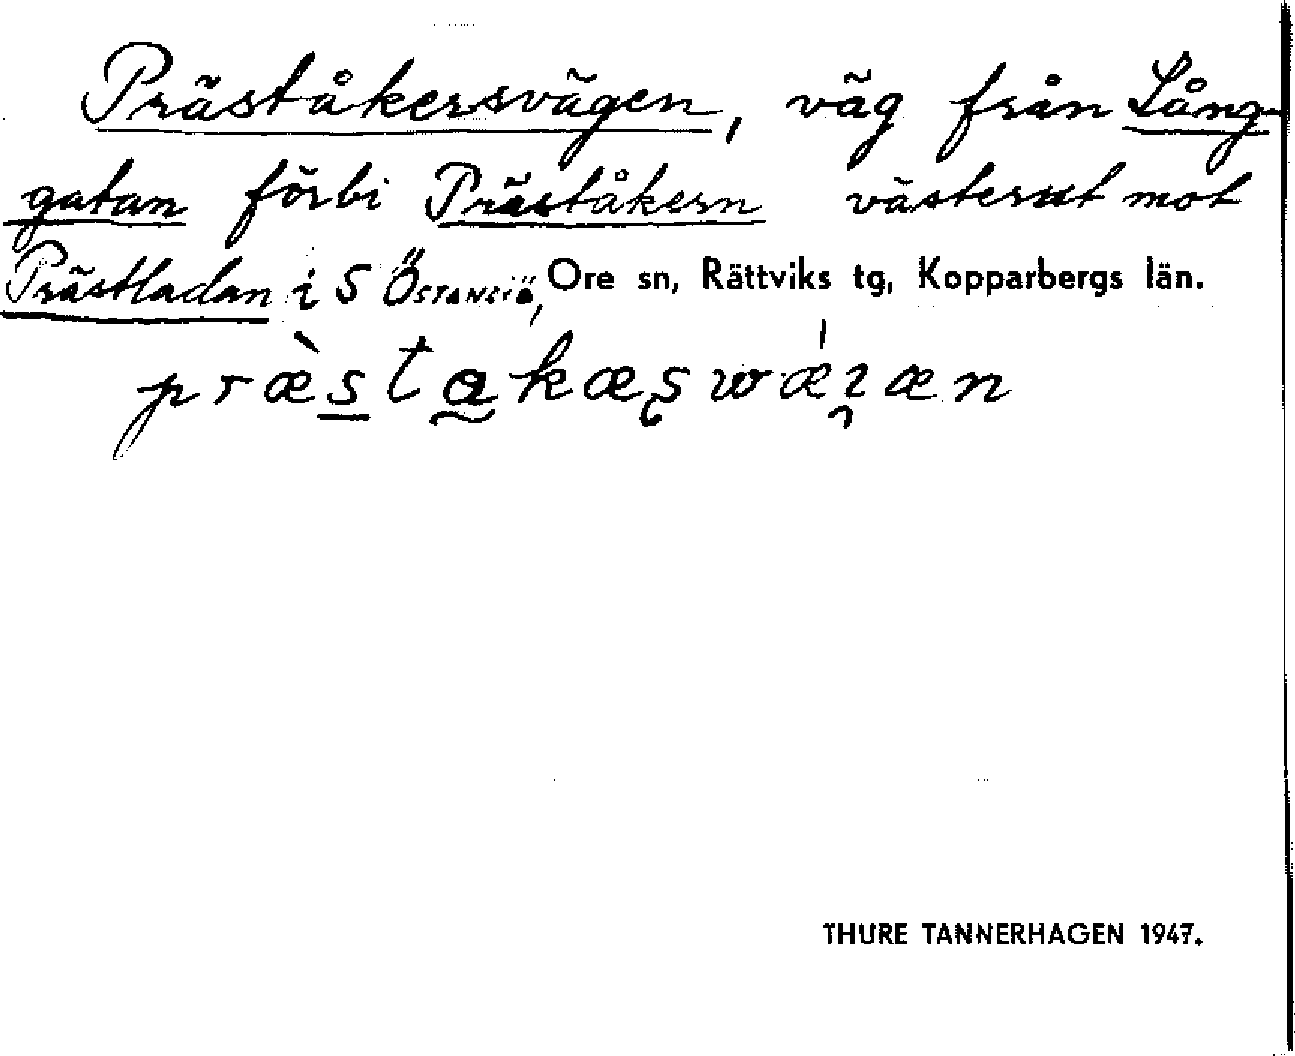 Präståkersvägen, väg från Lång-
gatan förbi Präståkern västerut mot
Prästladan i S Östanvik, Ore sn, Rättviks tg, Kopparbergs län.
THURE TANNERHAGEN 1947.